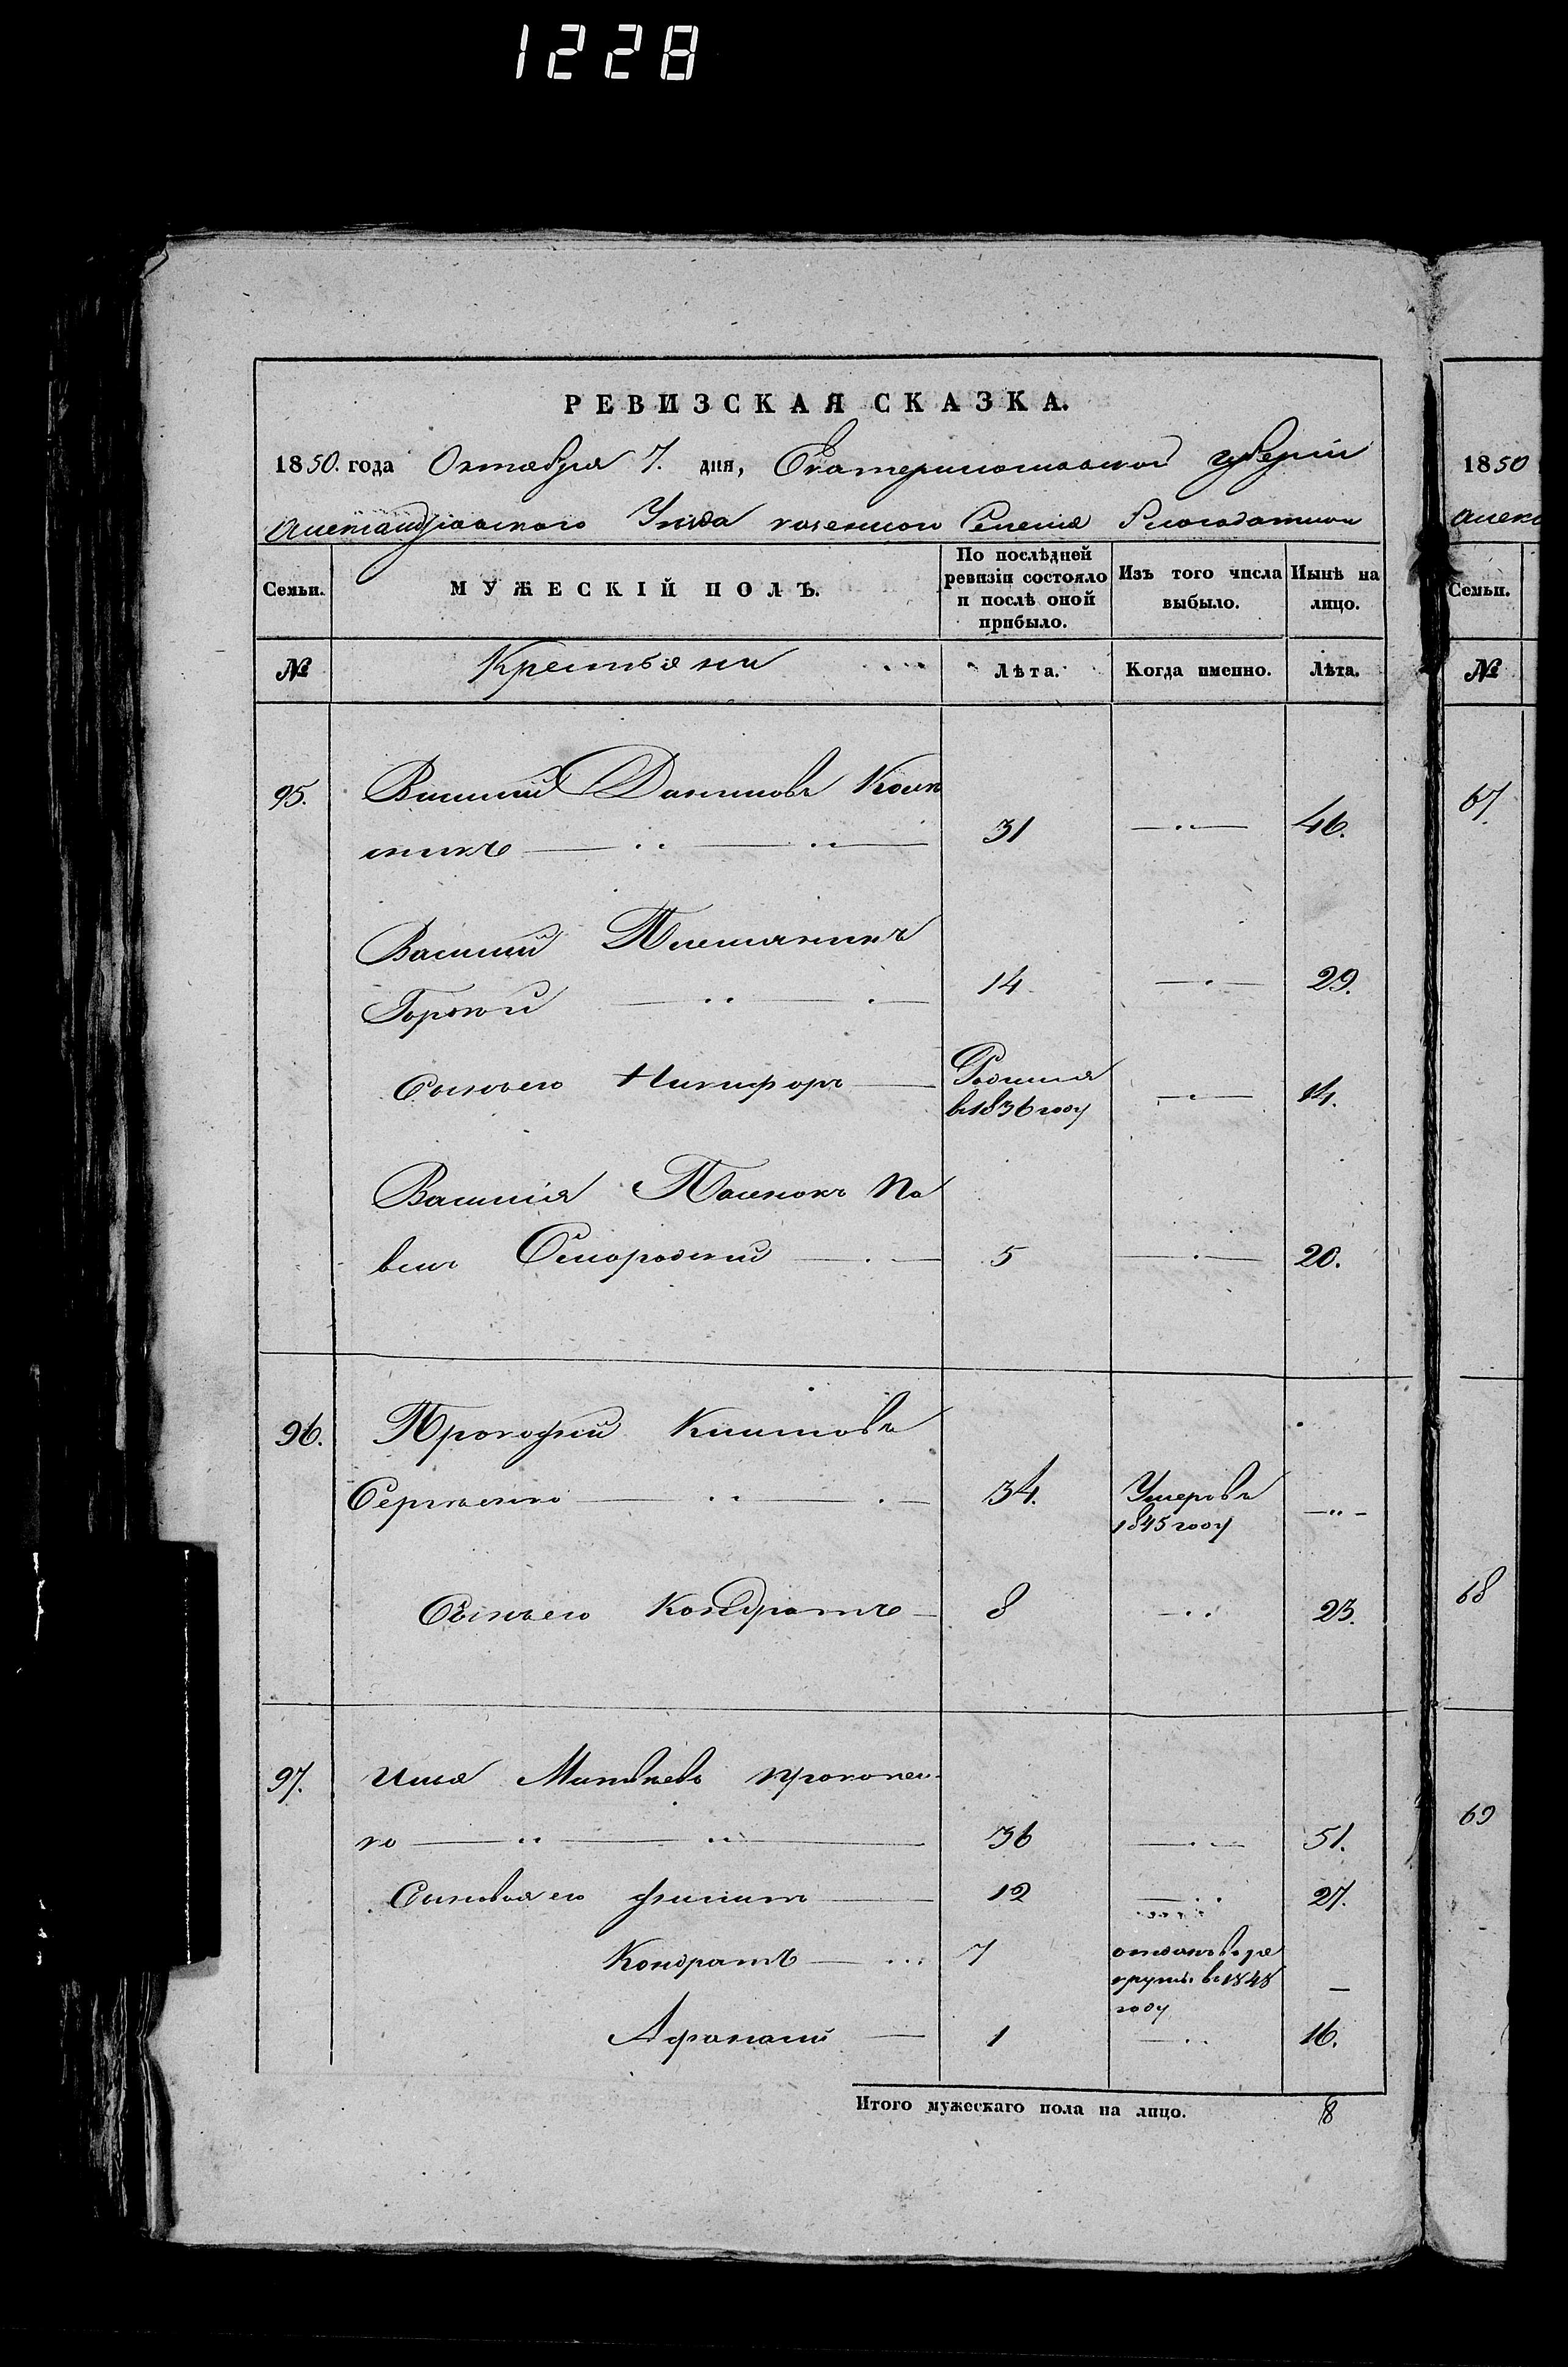 1228
РЕВИЗСКАЯ СКАЗКА.
1850. года Октября 7. дня, Екатеринославской губерніи
Александровскаго Уезда казенном Селеніи Благодатном
Семьи.
МУЖЕСКІЙ ПОЛЪ.
По послѣдней ревизіи состояло и послѣ оной прибыло.
Изъ того числа выбыло.
Нынѣ на лицо.
№
Крестьяни
Лѣта.
Когда именно.
Лѣта.
95. Василий Даниловъ
31 46.
Василий Племянникъ
14 29.
Сынъ его Никифоръ Родился
въ 1836 году 14.
Василия Пасенокъ Па
велъ 5 20.
96. Прокофий Климовъ
Сергѣенко 34. Умеръ въ
1845 году
Сынъ его Кондратъ 8 23.
97. Илья Матвѣевъ Прокопен
ко 36 51.
Сыновья его Филипъ 12 27.
Кондратъ 7 отданъ въ ре
круты въ 1848
году
Афанасий 1 16.
Итого мужескаго пола на лицо. 8
1850
Алекс
Семьи.
№
67.
68
69